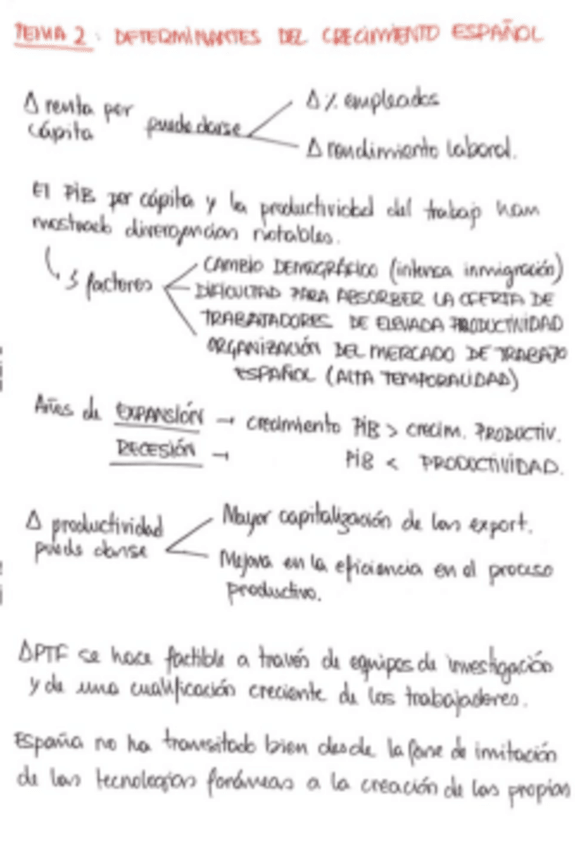 TEMA 2: DETERMINANTES DEL CRECIMIENTO ESPAÑOL
Δ renta por cápita puede darse
Δ % empleados
Δ rendimiento laboral.
El PiB per cápita y la productividad del trabajo han
mostrado divergencias notables.
3 factores
CAMBIO DEMOGRÁFICO (intensa inmigración)
DIFICULTAD PARA ABSORBER LA OFERTA DE
TRABAJADORES DE ELEVADA PRODUCTIVIDAD
ORGANIZACIÓN DEL MERCADO DE TRABAJO
ESPAÑOL (ALTA TEMPORALIDAD)
Años de EXPANSIÓN → crecimiento PiB > crecim. PRODUCTIV.
RECESIÓN → PiB < PRODUCTIVIDAD.
Δ productividad
puede darse
Mayor capitalización de las export.
Mejora en la eficiencia en el proceso
productivo.
ΔPTF se hace factible a través de equipos de investigación
y de una cualificación creciente de los trabajadores.
España no ha transitado bien desde la fase de imitación
de las tecnologías foráneas a la creación de las propias